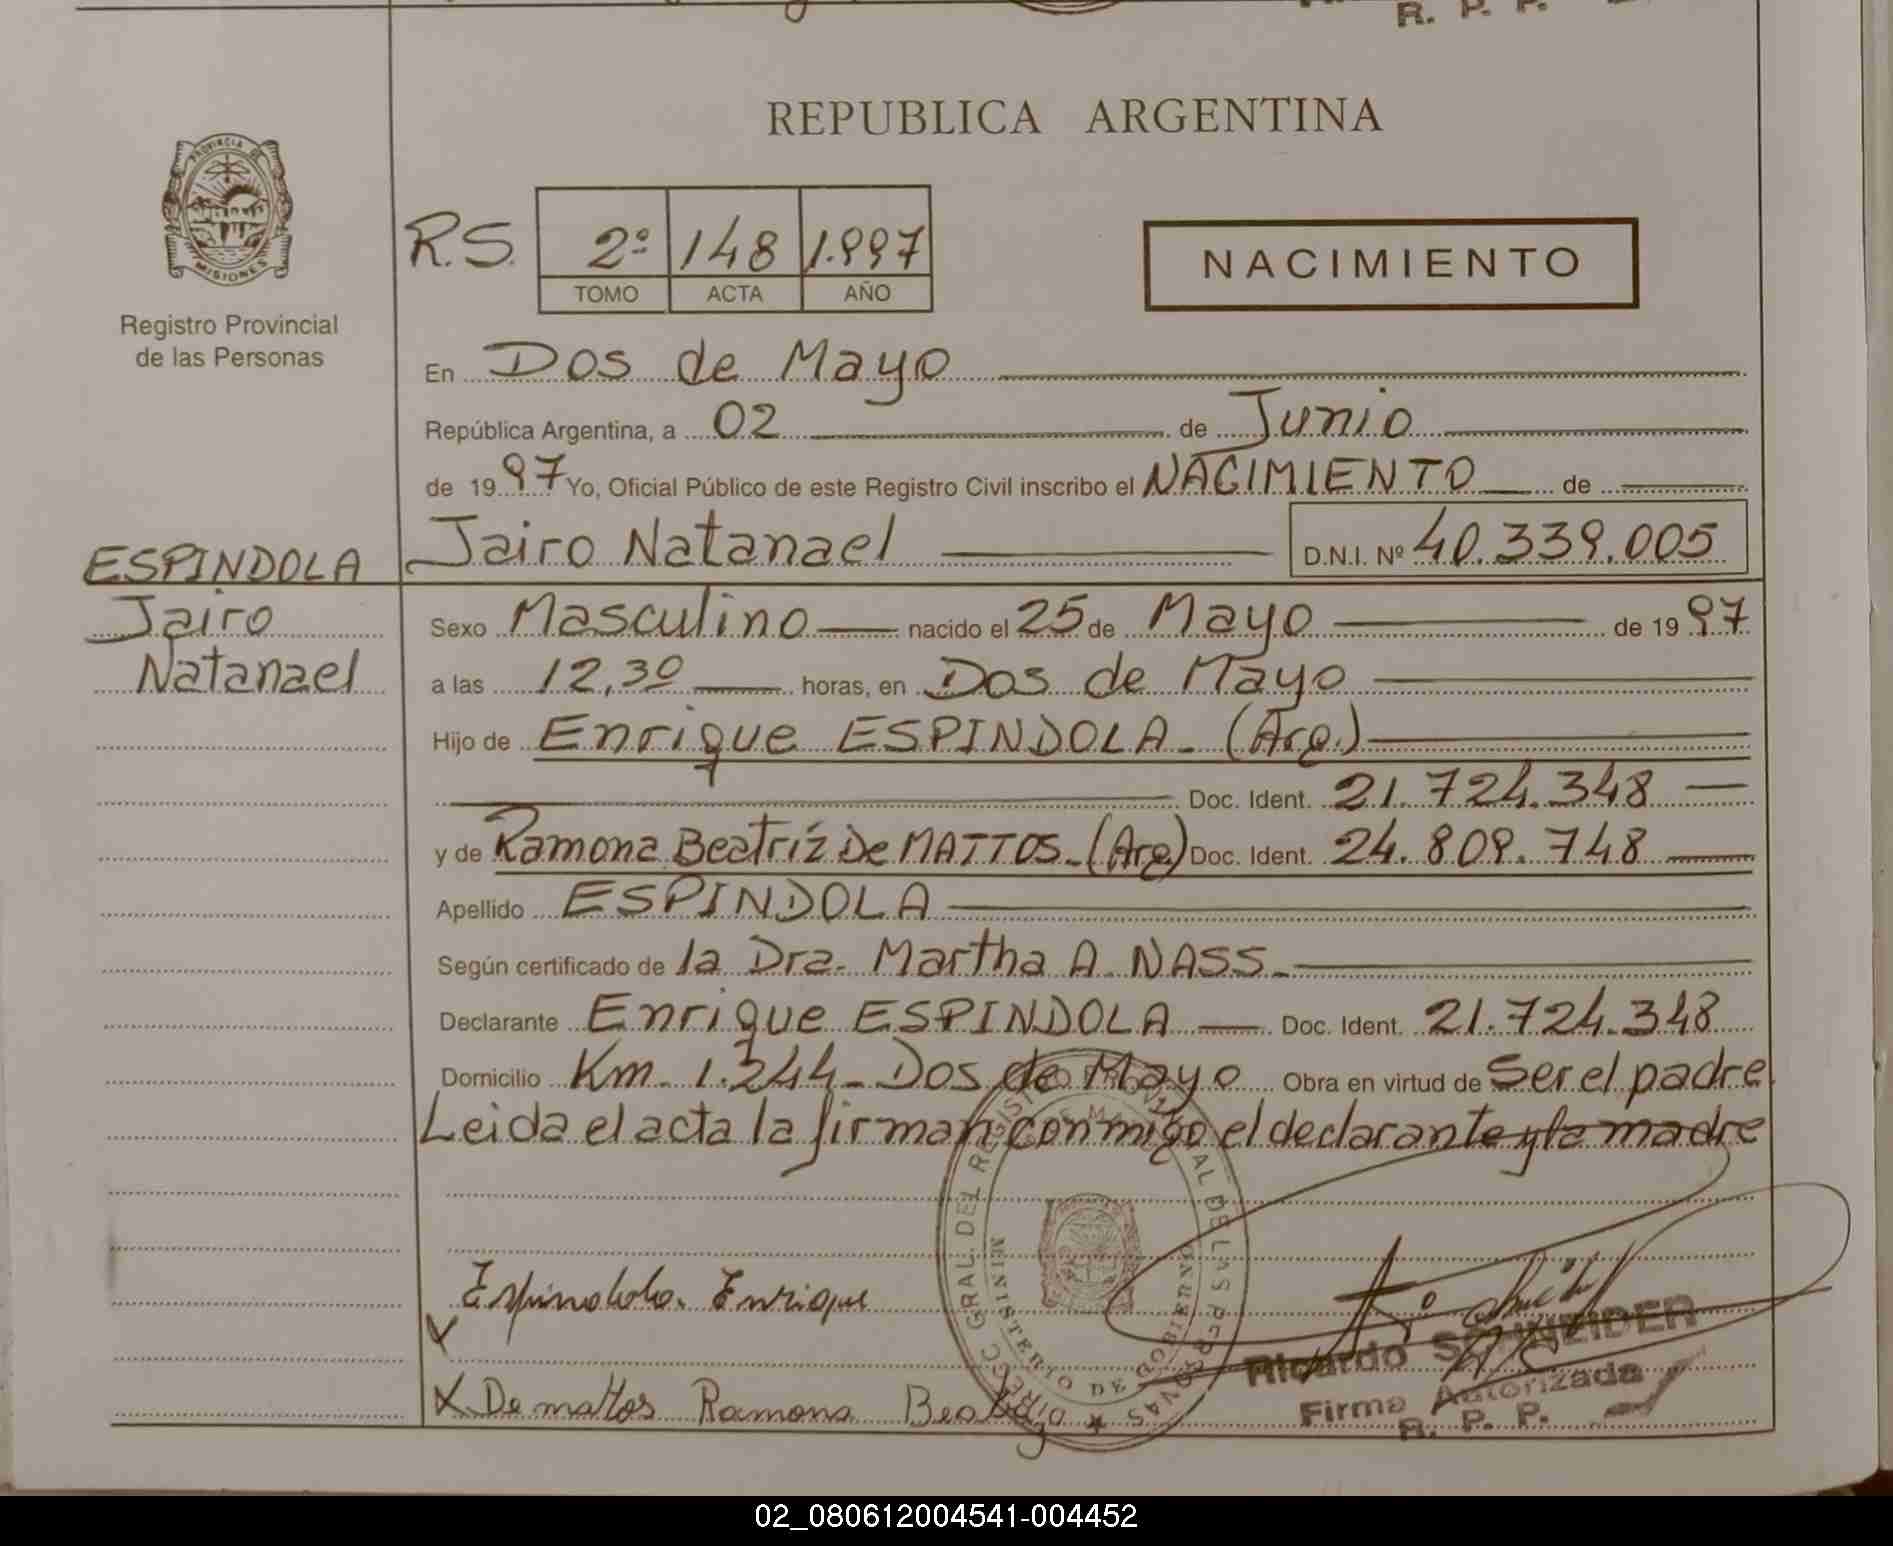 R. P. P.
REPUBLICA ARGENTINA
PROVINCIA DE
MISIONES
Registro Provincial
de las Personas
R.S. 2º 148 1.997
TOMO ACTA AÑO
NACIMIENTO
En Dos de Mayo
República Argentina, a 02 de Junio
de 1997 Yo, Oficial Público de este Registro Civil inscribo el NACIMIENTO de
ESPINDOLA Jairo Natanael D.N.I. Nº 40.339.005
Jairo Sexo Masculino nacido el 25 de Mayo de 1997
Natanael a las 12,30 horas, en Dos de Mayo
Hijo de Enrique ESPINDOLA - (Arg.)
Doc. Ident. 21.724.348
y de Ramona Beatríz De MATTOS - (Arg) Doc. Ident. 24.809.748
Apellido ESPINDOLA
Según certificado de la Dra. Martha A. NASS.-
Declarante Enrique ESPINDOLA Doc. Ident. 21.724.348
Domicilio Km. 1.244 - Dos de Mayo Obra en virtud de Ser el padre
Leida el acta la firman conmigo el declarante y la madre
Espindola. Enrique
X
X De mattos Ramona Beatriz
DIRECC GRAL. DEL REGISTRO PROVINCIAL DE LAS PERSONAS
MINISTERIO DE GOBIERNO
Ricardo SCHNEIDER
Firma Autorizada
R. P. P.
02_080612004541-004452